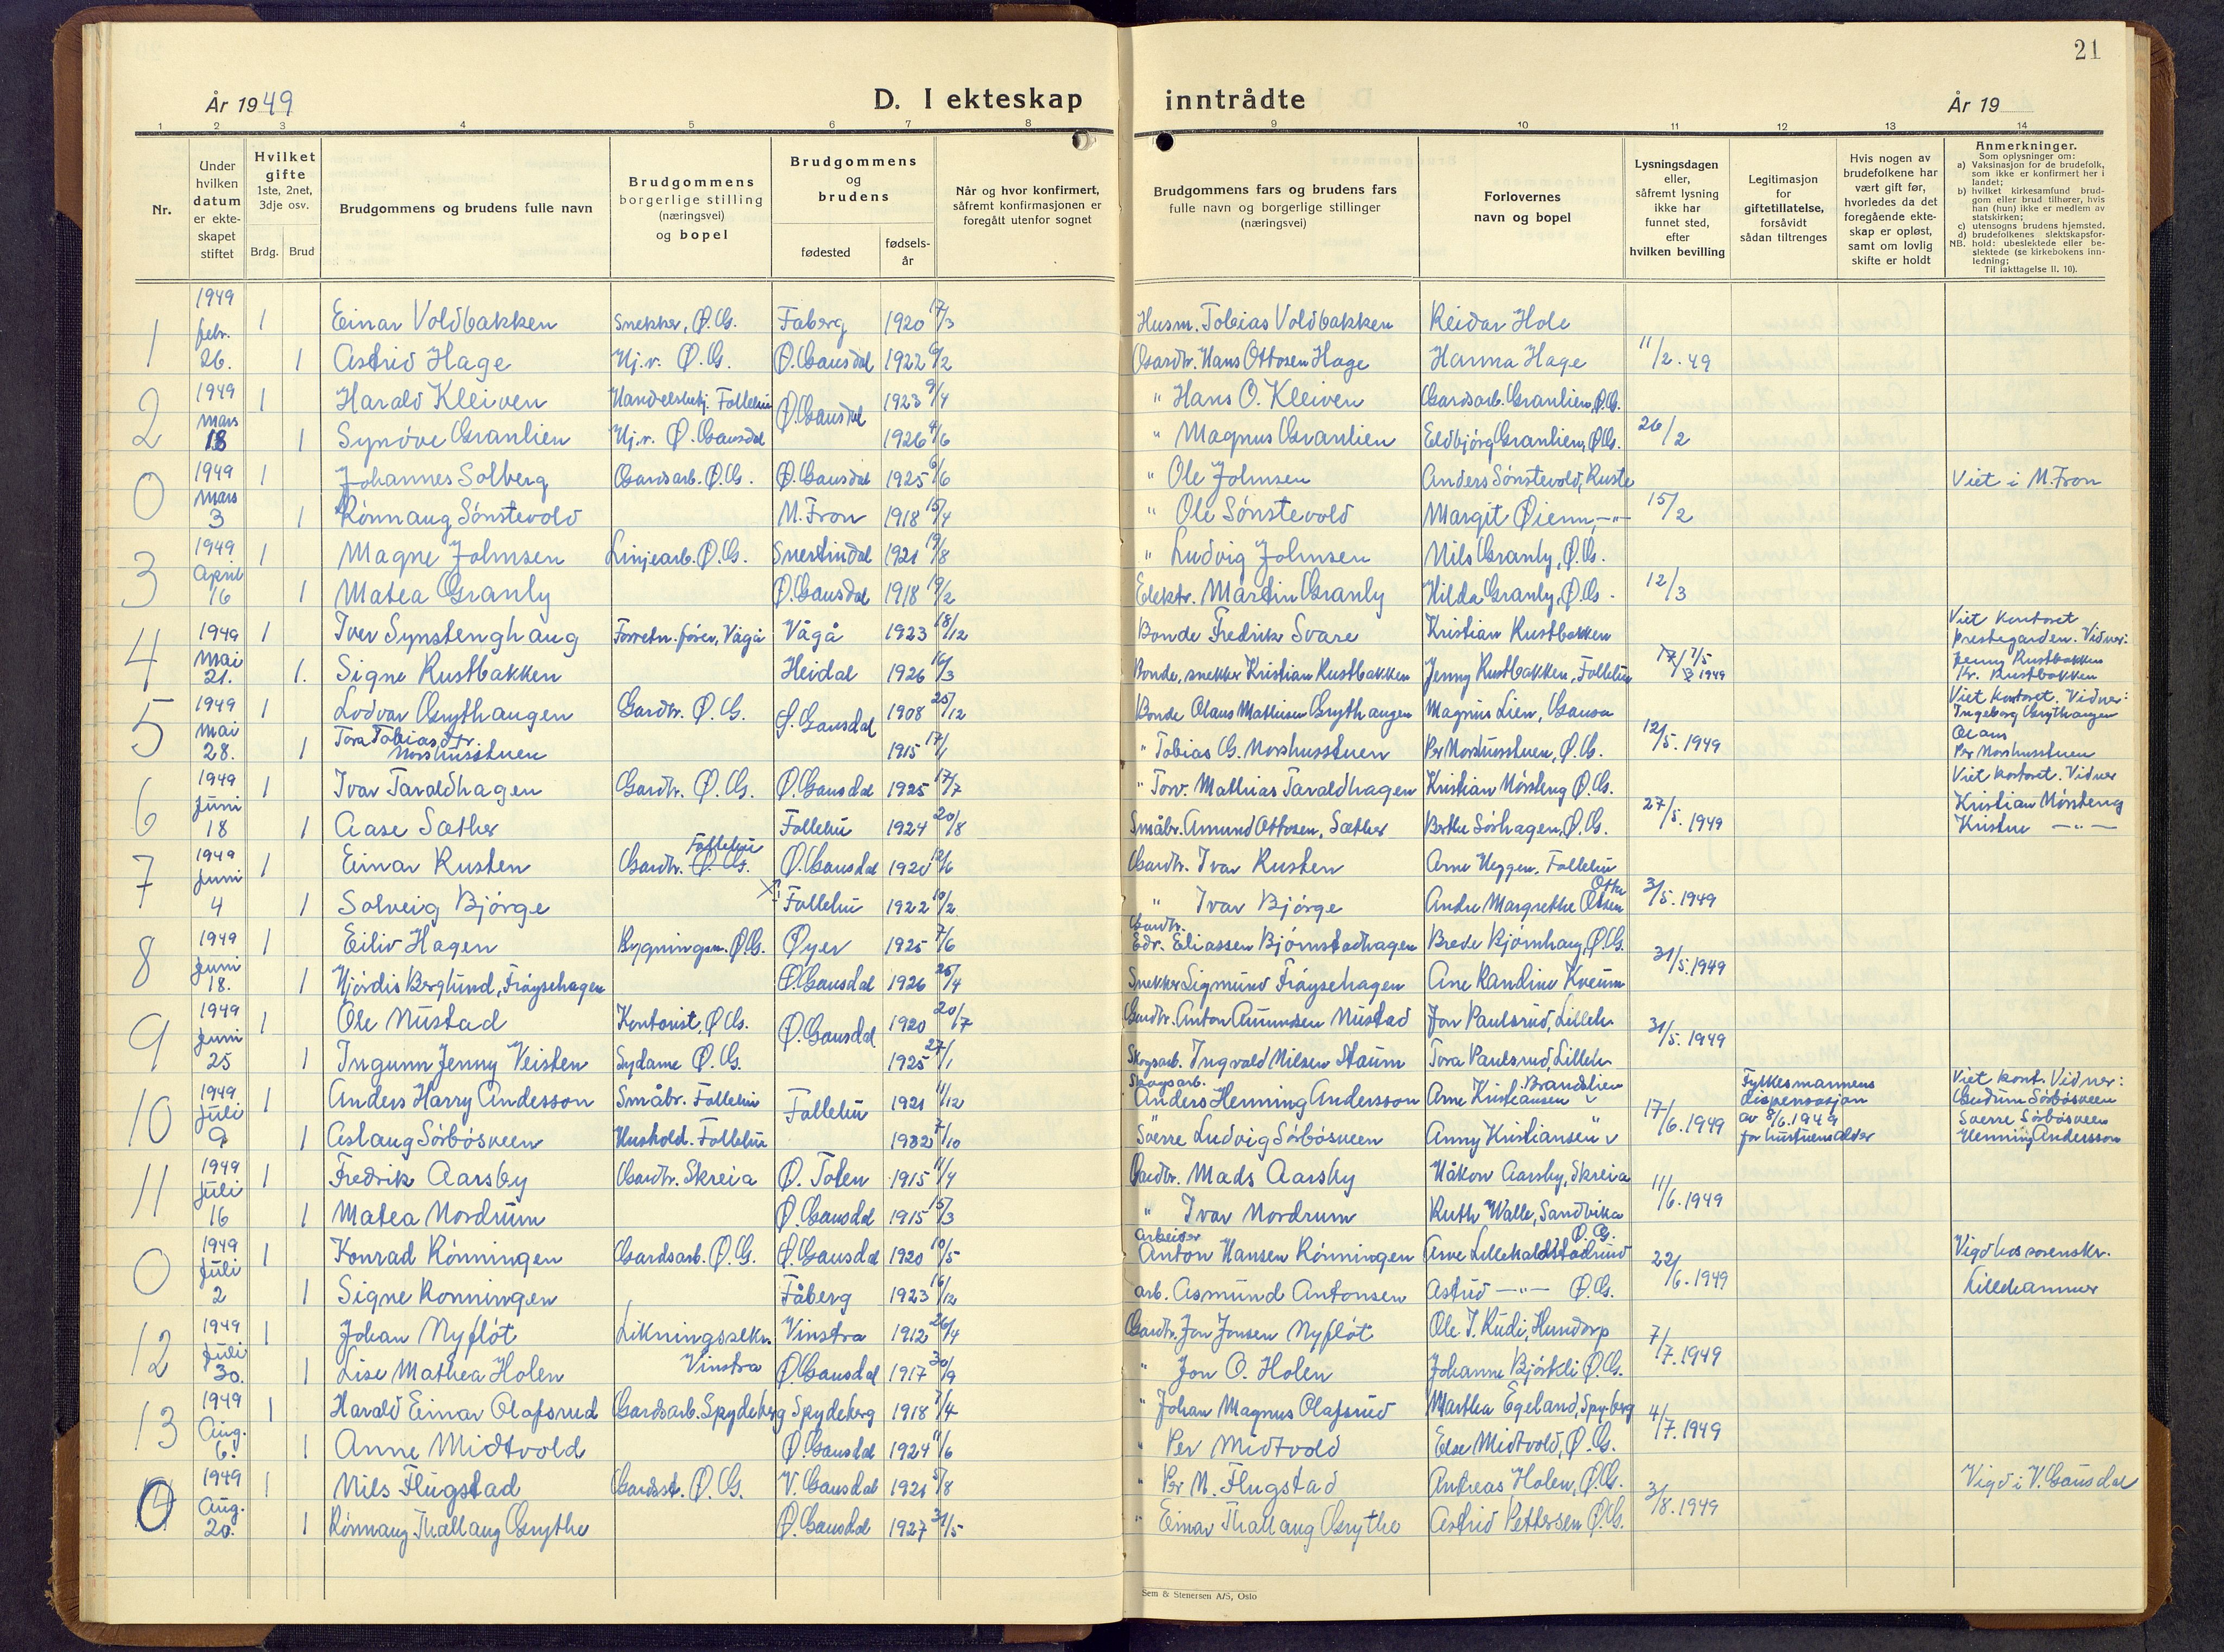 21
År 1949
D. I ekteskap inntrådte
År 19
1 2 3 4 5 6 7 8 9 10 11 12 13 14
Nr.
Under hvilken datum er ekteskapet stiftet
Hvilket gifte 1ste, 2net, 3dje osv.
Brdg. Brud
Brudgommens og brudens fulle navn
Brudgommens borgerlige stilling (næringsvei) og bopel
Brudgommens og brudens
fødested
fødsels-år
Når og hvor konfirmert, såfremt konfirmasjonen er foregått utenfor sognet
Brudgommens fars og brudens fars fulle navn og borgerlige stillinger (næringsvei)
Forlovernes navn og bopel
Lysningsdagen eller, såfremt lysning ikke har funnet sted, efter hvilken bevilling
Legitimasjon for giftetillatelse, forsåvidt sådan tiltrenges
Hvis nogen av brudefolkene har vært gift før, hvorledes da det foregående ekteskap er opløst, samt om lovlig skifte er holdt
Anmerkninger.
Som oplysninger om:
a) Vaksinasjon for de brudefolk, som ikke er konfirmert her i landet;
b) hvilket kirkesamfund brudgom eller brud tilhører, hvis han (hun) ikke er medlem av statskirken;
c) utensogns brudens hjemsted,
d) brudefolkenes slektskapsforhold: ubeslektede eller beslektede (se kirkebokens innledning;
NB.
Til iakttagelse II. 10).
1 1949 febr. 26. 1 Einar Voldbakken Snekker, Ø.G. Faberg 1920 17/3 Husm. Tobias Voldbakken Reidar Hole
1 Astrid Hage Hj.v. Ø.G. Ø. Gausdal 1922 9/2 Gardbr. Hans Ottosen Hage Hanna Hage 11/2.49
2 1949 mars 18 1 Harald Kleiven Handelsbetj. Follebu Ø. Gausdal 1923 9/4 " Hans O. Kleiven Gardsarb. Granlien, Ø.G.
1 Synöve Granlien Hj.v. Ø. Gausdal 1926 4/6 " Magnus Granlien Eldbjörg Granlien, Ø.G. 26/2
0 1949 mars 3 1 Johannes Solberg Gardsarb. Ø.G. Ø. Gausdal 1925 6/6 " Ole Johnsen Anders Sönstevold, Ruste Viet i M. Fron
1 Rönnaug Sönstevold M. Fron 1918 15/4 " Ole Sönstevold Margit Øienn, -"- 15/2
3 1949 April 16 1 Magne Johnsen Linjearb. Ø.G. Snertindal 1921 19/8 " Ludvig Johnsen Nils Granly, Ø.G.
1 Matea Granly Ø. Gausdal 1918 19/2 Elektr. Martin Granly Hilda Granly, Ø.G. 12/3
4 1949 mai 21. 1 Iver Synstenghaug Forretn.förer, Vågå Vågå 1923 18/12 Bonde Fredrik Svare Kristian Rustbakken Viet kontoret prestegarden. Vidner:
1. Signe Rustbakken Heidal 1926 16/3 Bonde, snekker Kristian Rustbakken Jenny Rustbakken, Follebu 7/5 1949 Jenny Rustbakken Kr. Rustbakken
5 1949 mai 28. 1 Lodvar Grythaugen Gardbr. Ø.G. Ø. Gausdal 1908 25/12 Bonde Olaus Mathisen Grythaugen Magnus Lien, Gausa Viet kontoret. Vidner: Ingeborg Grythaugen
1 Tora Tobiasdtr. Norshusstuen 1915 17/1 " Tobias G. Norshusstuen Per Norshusstuen, Ø.G. 12/5.1949 Olaus Per Norshusstuen
6 1949 Juni 18 1 Ivar Taraldhagen Gardbr. Ø.G. Ø. Gausdal 1925 17/7 " Torv. Mathias Taraldhagen Kristian Mörsteng Ø.G. Viet kontoret. Vidner
1 Aase Sæther Follebu 1924 20/8 Småbr. Amund Ottosen, Sæther Berthe Sörhagen, Ø.G. 27/5.1949 Kristian Mörsteng Kristine -"-
7 1949 Juni 4 1 Einar Rusten Gardbr. Follebu Ø.G. Ø. Gausdal 1920 12/6 Gardbr. Ivar Rusten Arne Heggen, Follebu
1 Solveig Bjørge Follebu 1922 10/2 " Ivar Bjørge Andre Margrethe Olsen 3/5.1949
8 1949 Juni 18. 1 Eiliv Hagen Bygningsm. Ø.G. Øyer 1925 7/6 Gardbr. Edv. Eliassen Bjørnstadhagen Brede Bjørnhaug, Ø.G.
1 Hjördis Berglund, Fröysehagen Ø. Gausdal 1926 25/4 Snekker Sigmund Fröysehagen Ane Randine Kveum 31/5.1949
9 1949 Juni 25 1 Ole Mustad Kontorist, Ø.G. Ø. Gausdal 1920 20/7 Gardbr. Anton Amundsen Mustad Jon Paulsrud, Lilleh.
1 Ingunn Jenny Veisten Sydame Ø.G. 1925 27/1 Skogsarb. Ingvald Nilsen Staum Tora Paulsrud, Lilleh. 31/5.1949
10 1949 Juli 9 1 Anders Harry Andesson Småbr. Follebu Follebu 1921 11/12 Skogsarb. Anders Henning Andersson Arne Kristiansen Brandslien Fylkesmannens dispensasjon av 8/6.1949 for hustruens alder Viet kont. Vidner: Gudrun Sörbösveen
1 Aslaug Sörbösveen Hushold. Follebu 1932 7/10 Sverre Ludvig Sörbösveen Anny Kristiansen " 17/6.1949 Sverre Sörbösveen Henning Andersson
11 1949 Juli 16 1 Fredrik Aarsby Gardbr. Skreia Ø. Toten 1915 11/4 Gardbr. Mads Aarsby Håkon Aarsby, Skreia
1 Matea Nordrum Ø. Gausdal 1915 15/3 " Ivar Nordrum Ruth Walle, Sandvika 11/6.1949
0 1949 Juli 2 1 Konrad Rönningen Gardsarb. Ø.G. Ø. Gausdal 1920 10/5 arbeider Anton Hansen Rönningen Arne Ø.G. Vigd hos sorenskr.
1 Signe Ronningen Fåberg 1923 16/12 arb. Asmund Antonsen Astrid -"- Ø.G. 22/6.1949 Lillehammer
12 1949 Juli 30. 1 Johan Nyflöt Likningssekr. Vinstra Vinstra 1912 26/4 Gardbr. Jon Jonsen Nyflöt Ole J. Rudi, Hundorp
1 Lise Mathea Holen Ø. Gausdal 1917 30/9 " Jon O. Holen Johanne Bjørkli Ø.G. 7/7.1949
13 1949 Aug. 6. 1 Harald Einar Olafsrud Gardsarb. Spydeberg Spydeberg 1918 7/4 " Johan Magnus Olafsrud Martha Egeland, Spyberg
1 Anne Midtvold Ø. Gausdal 1924 11/6 " Per Midtvold Else Midtvold, Ø.G. 4/7.1949
0 1949 Aug. 20. 1 Nils Flugstad Gardsst. Ø.G. V. Gausdal 1921 5/8 " Per N. Flugstad Andreas Holen, Ø.G. Vigd i V. Gausdal
1 Rönnaug Thallaug Grythe Ø. Gausdal 1927 31/5 " Einar Thallaug Grythe Astrid Pettersen Ø.G. 3/8.1949
Sem & Stenersen A/S, Oslo